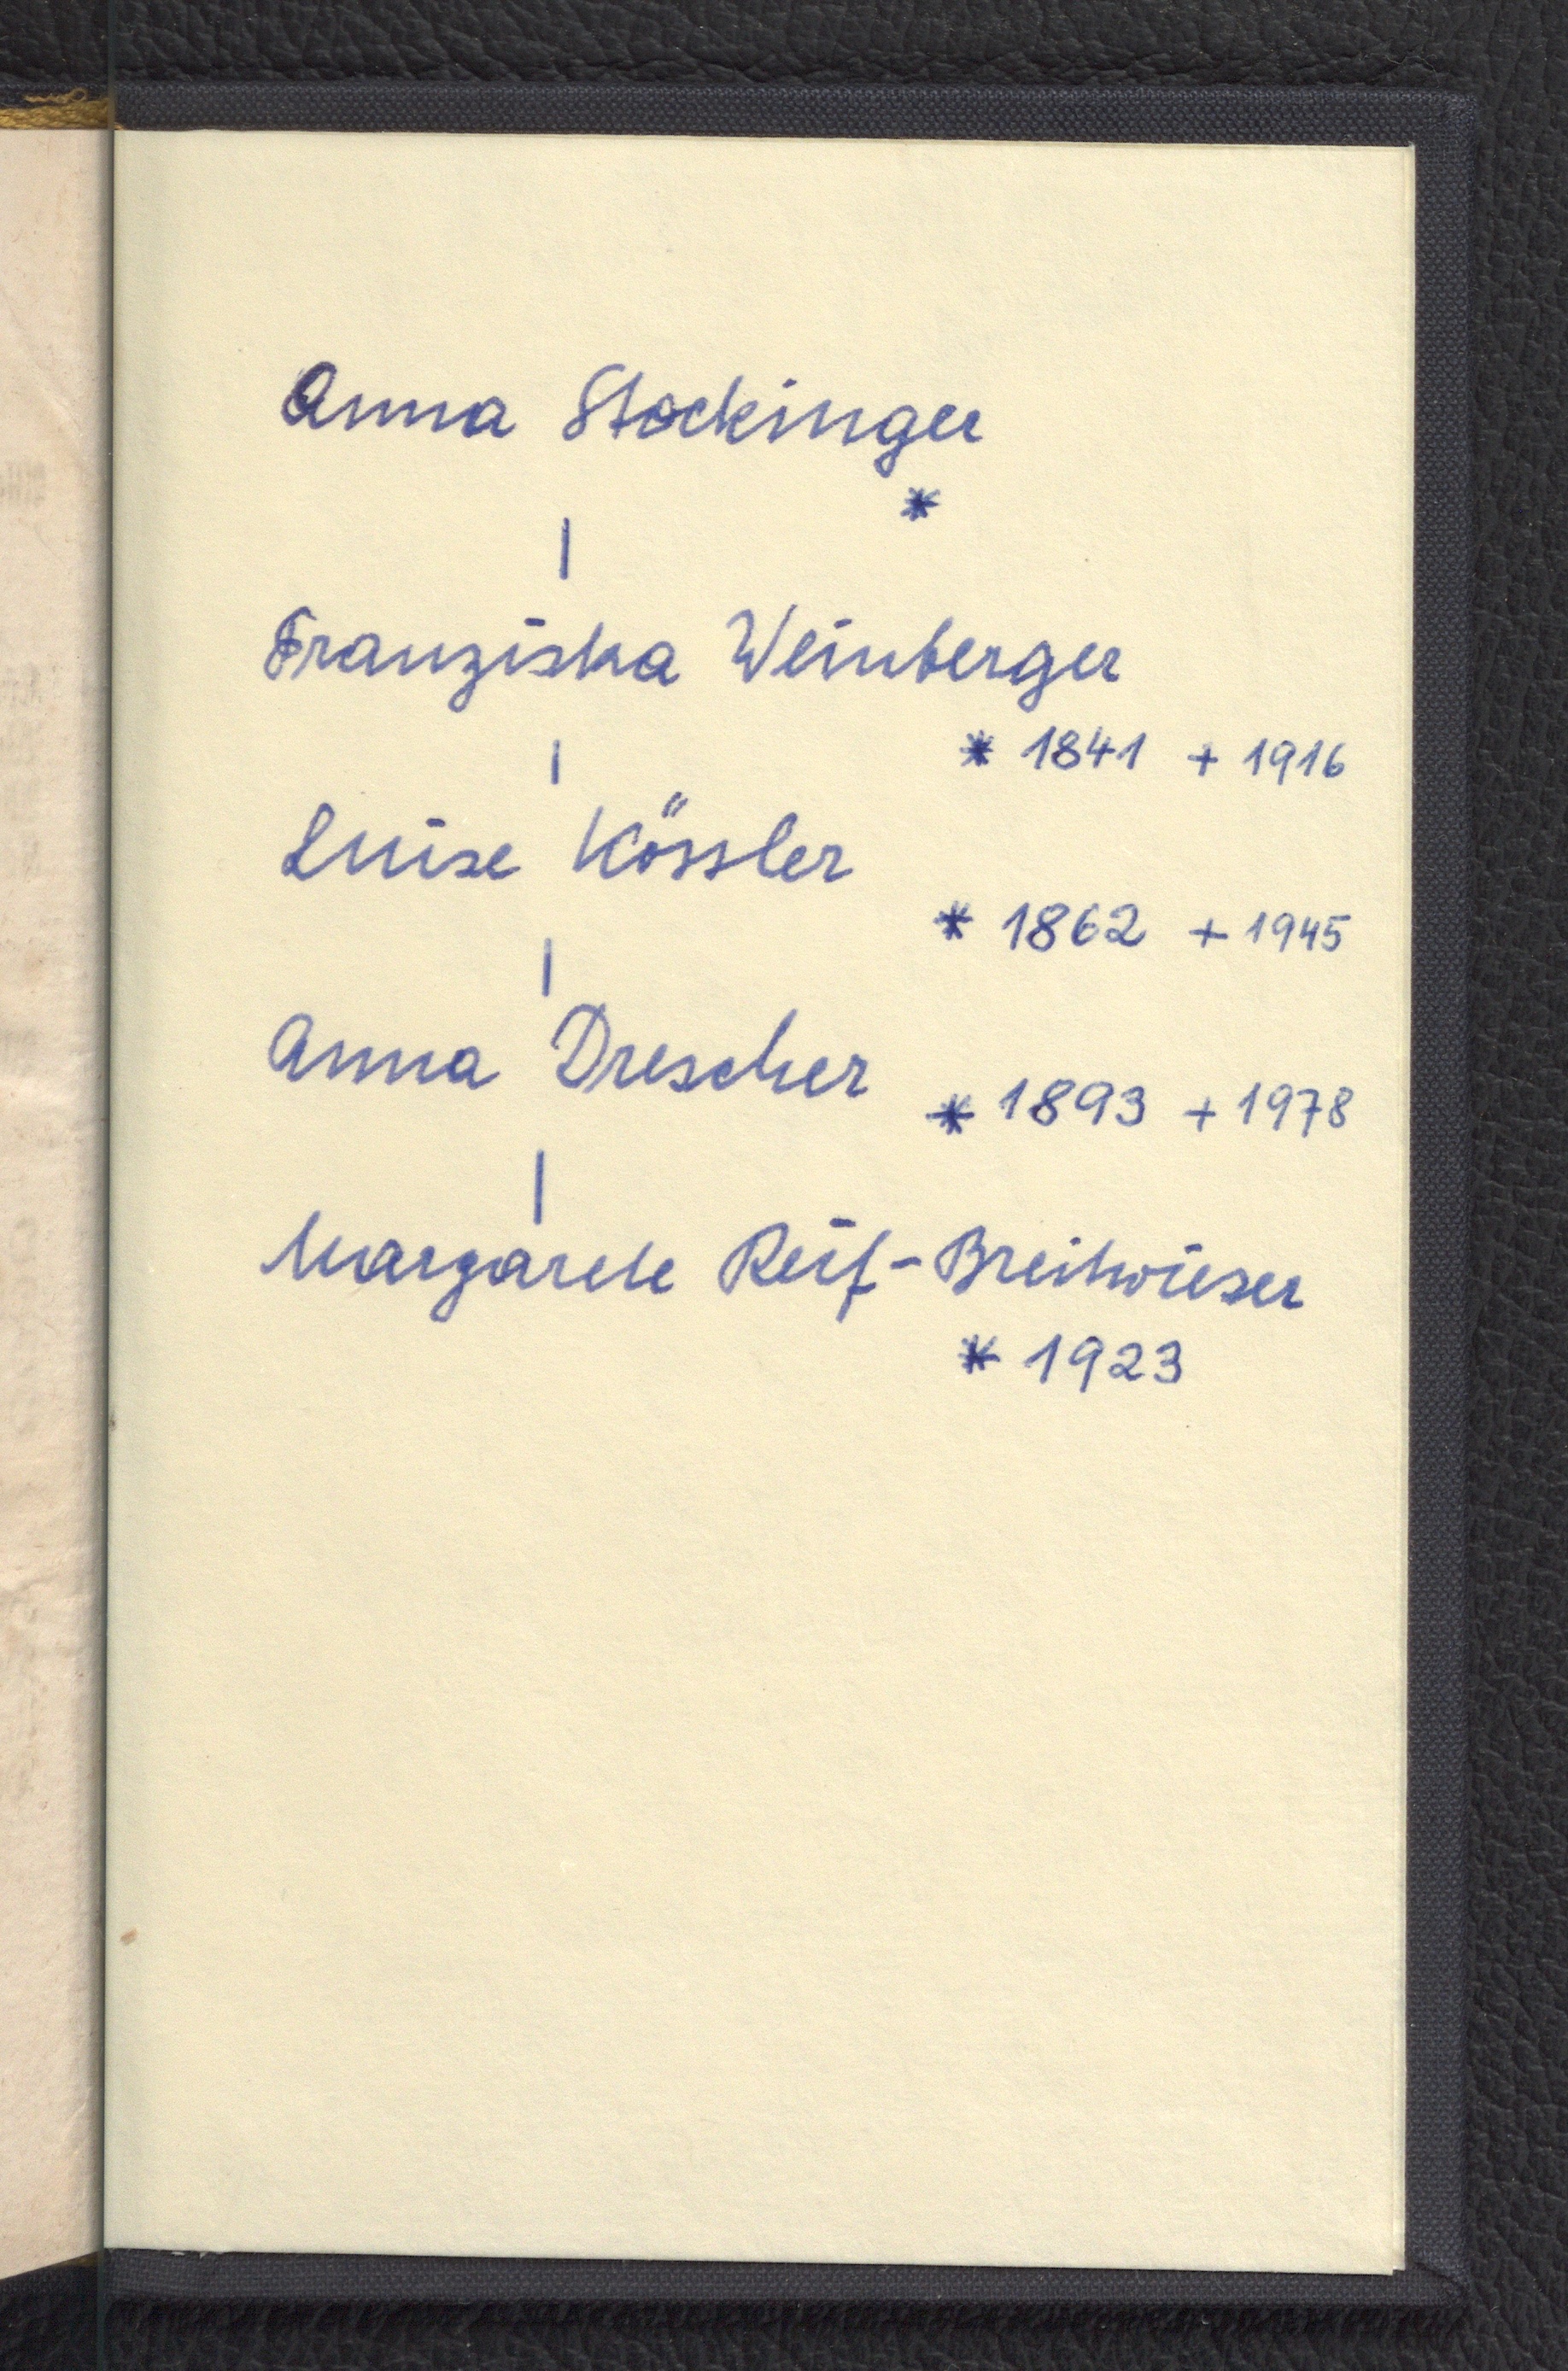 Anna Stockinger
*
|
Franziska Weinberger
|
* 1841 + 1916
Luise Kössler
* 1862 + 1945
|
Anna Drescher
* 1893 + 1978
|
Margarete Reif-Breitwieser
* 1923